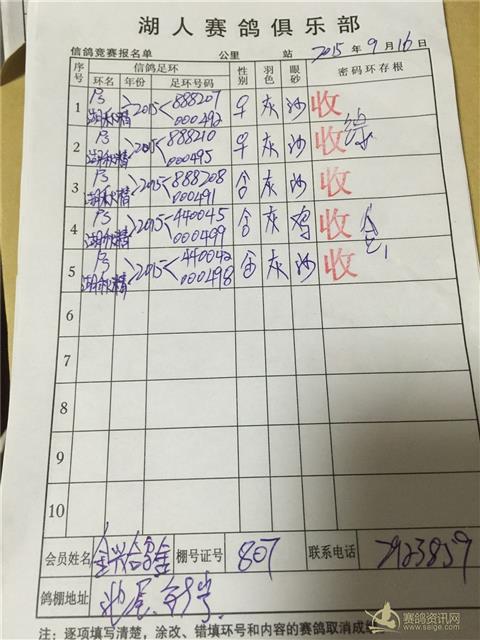 湖人赛鸽俱乐部
信鸽竞赛报名单 公里 站 2015年9月16日
序号 信鸽足环 性别 羽色 眼砂 密码环存根
环名 年份 足环号码
1 2015 888207 灰 沙 收
湖秋精 000492
2 2015 888210 灰 沙 收
000495
3 2015 888208 灰 沙 收
湖秋精 000491
4 2015 440045 灰 鸡 收
湖秋精 000499
5 2015 440042 灰 沙 收
湖秋精 000498
6
7
8
9
10
会员姓名 棚号证号 807 联系电话 7923859
鸽棚地址
注：逐项填写清楚，涂改、错填环号和内容的赛鸽取消成
赛鸽资讯网
www.saige.com